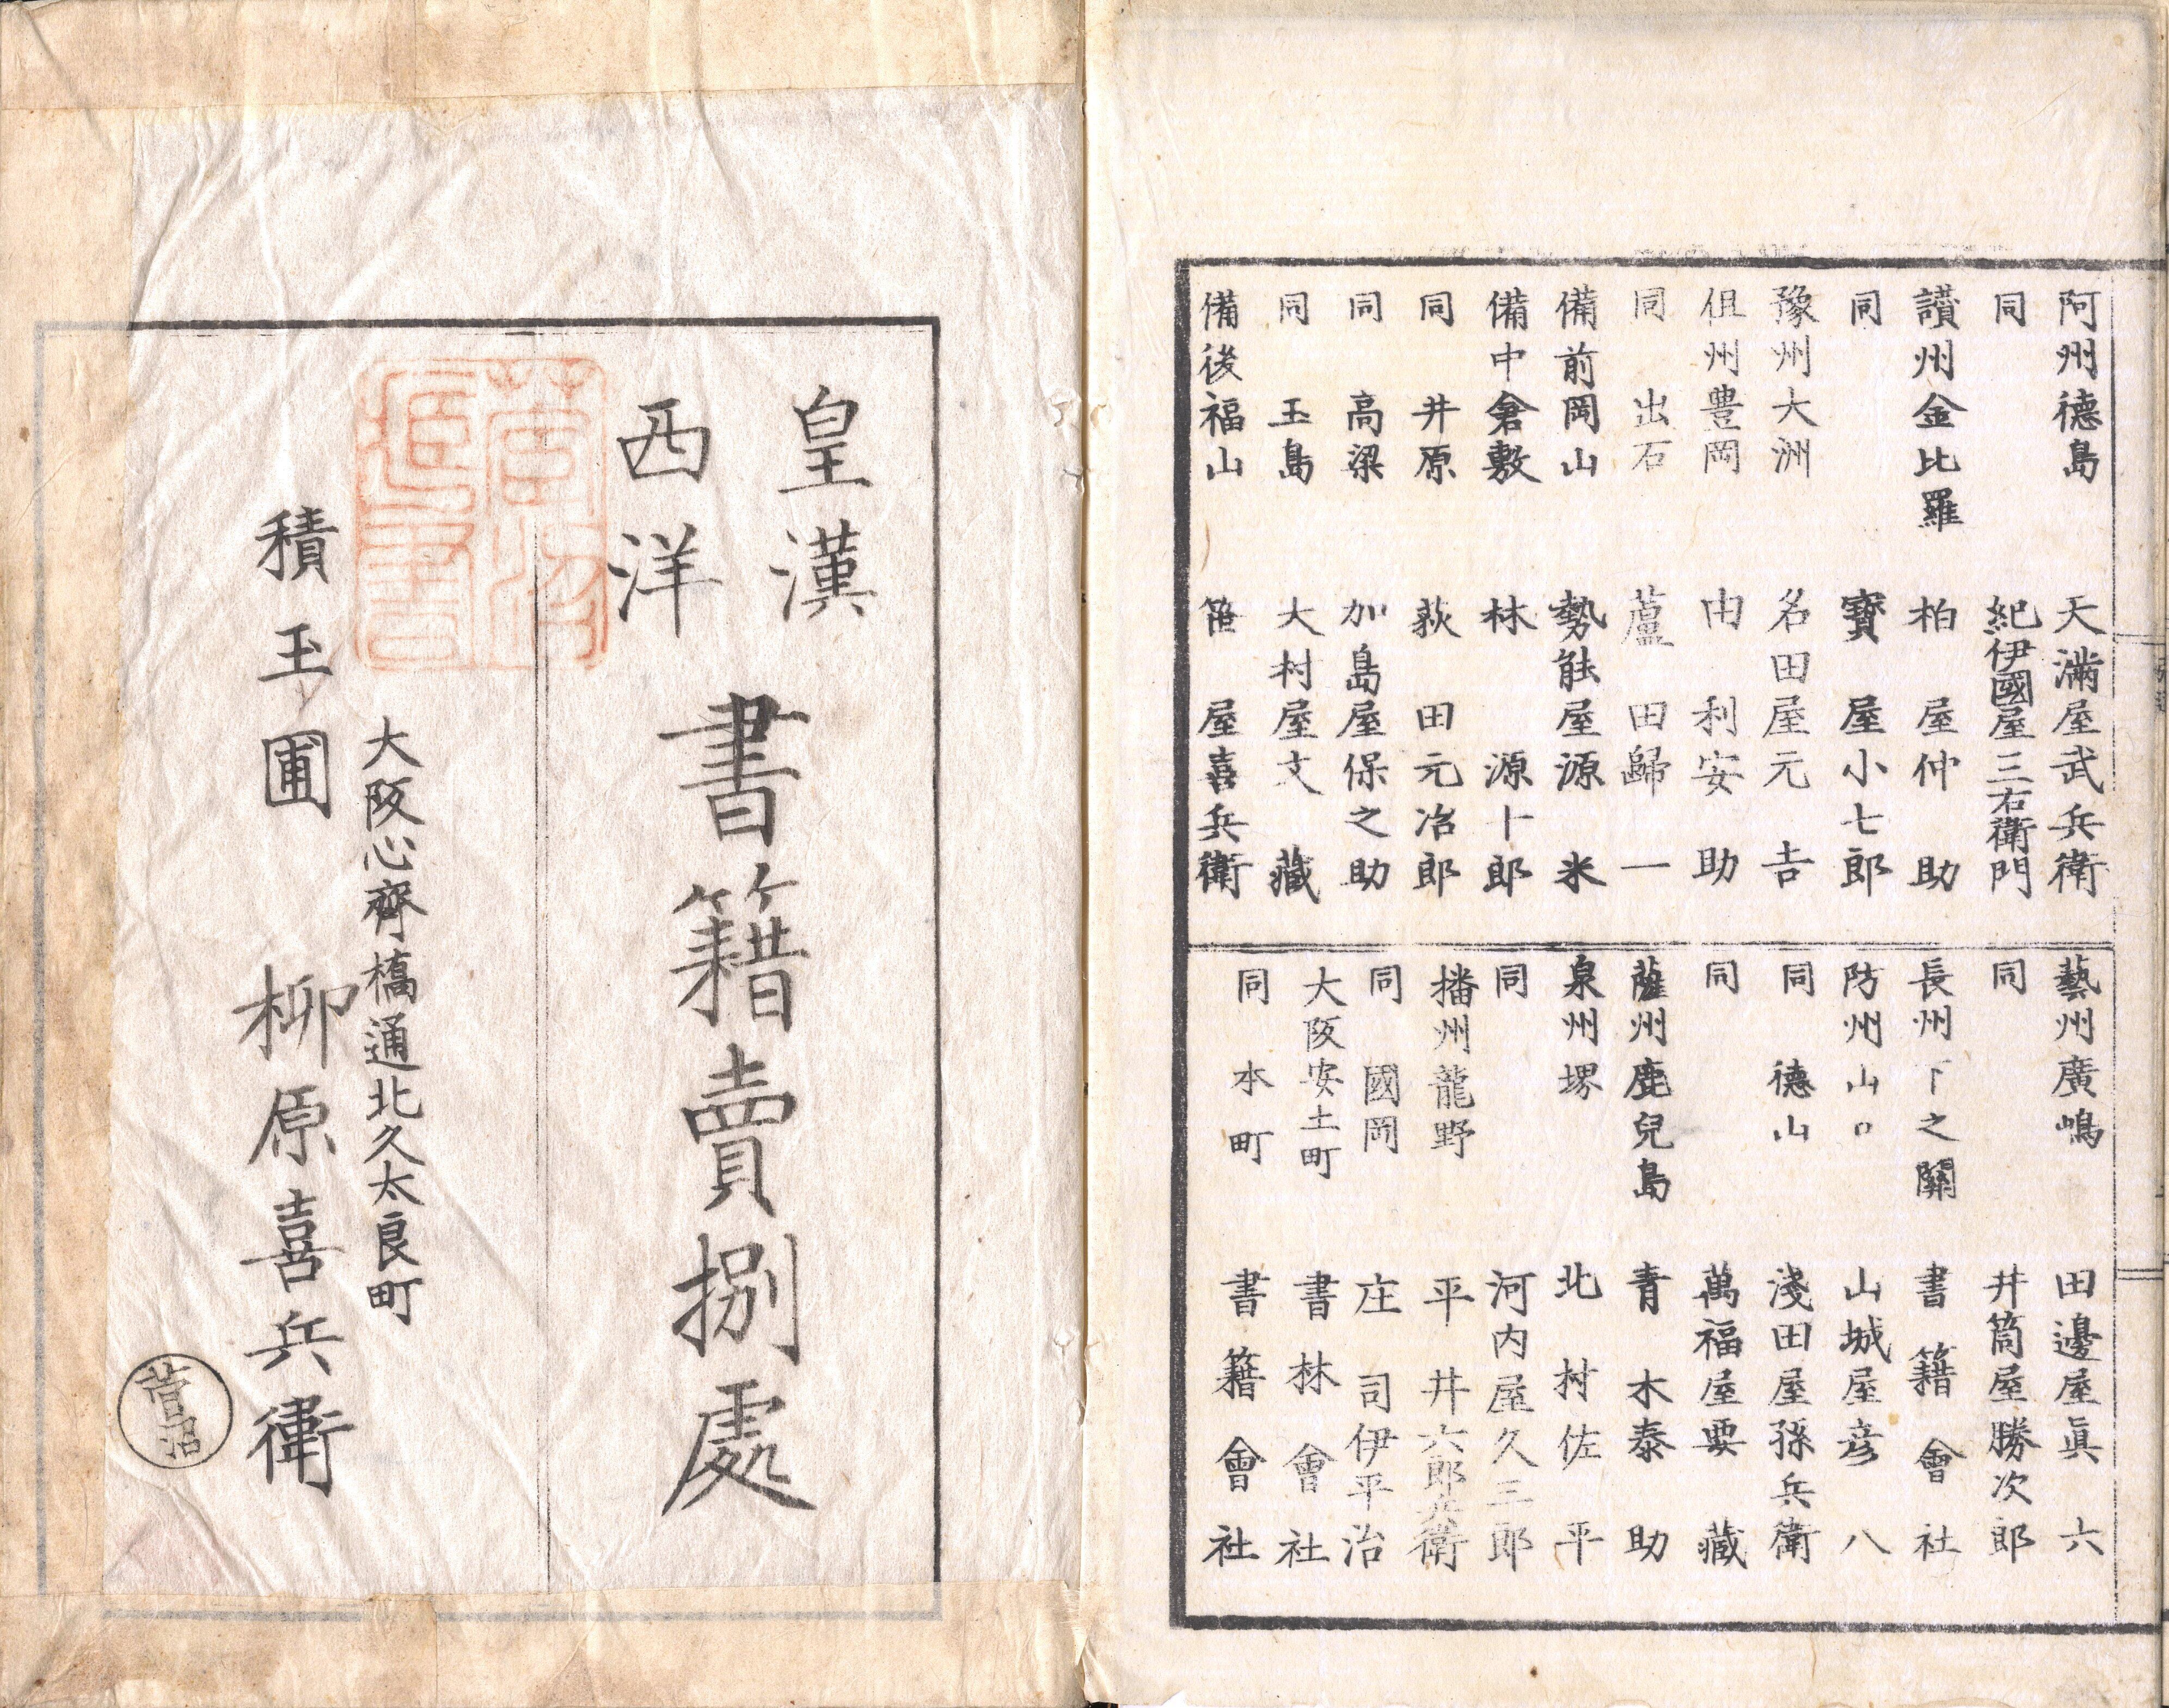 阿州德島 天滿屋武兵衛
同 紀伊國屋三右衛門
讃州金比羅 柏屋仲助
同 寳屋小七郎
豫州大洲 名田屋元吉
但州豊岡 由利安助
同 出石 蘆田歸一
備前岡山 勢能屋源米
備中倉敷 林源十郎
同 井原 萩田元治郎
同 高梁 加島屋保之助
同 玉島 大村屋文藏
備後福山 笹屋喜兵衛
藝州廣嶋 田邊屋眞六
同 井筒屋勝次郎
長州下之關 書籍會社
防州山口 山城屋彦八
同 德山 淺田屋孫兵衛
同 萬福屋要藏
薩州鹿兒島 青木泰助
泉州堺 北村佐平
同 河内屋久三郎
播州龍野 平井六郎兵衛
同 國岡 庄司伊平治
大阪安土町 書林會社
同 本町 書籍會社
皇漢
西洋
書籍賣捌處
大阪心齊橋通北久太良町
積玉圃 柳原喜兵衛
菅沼